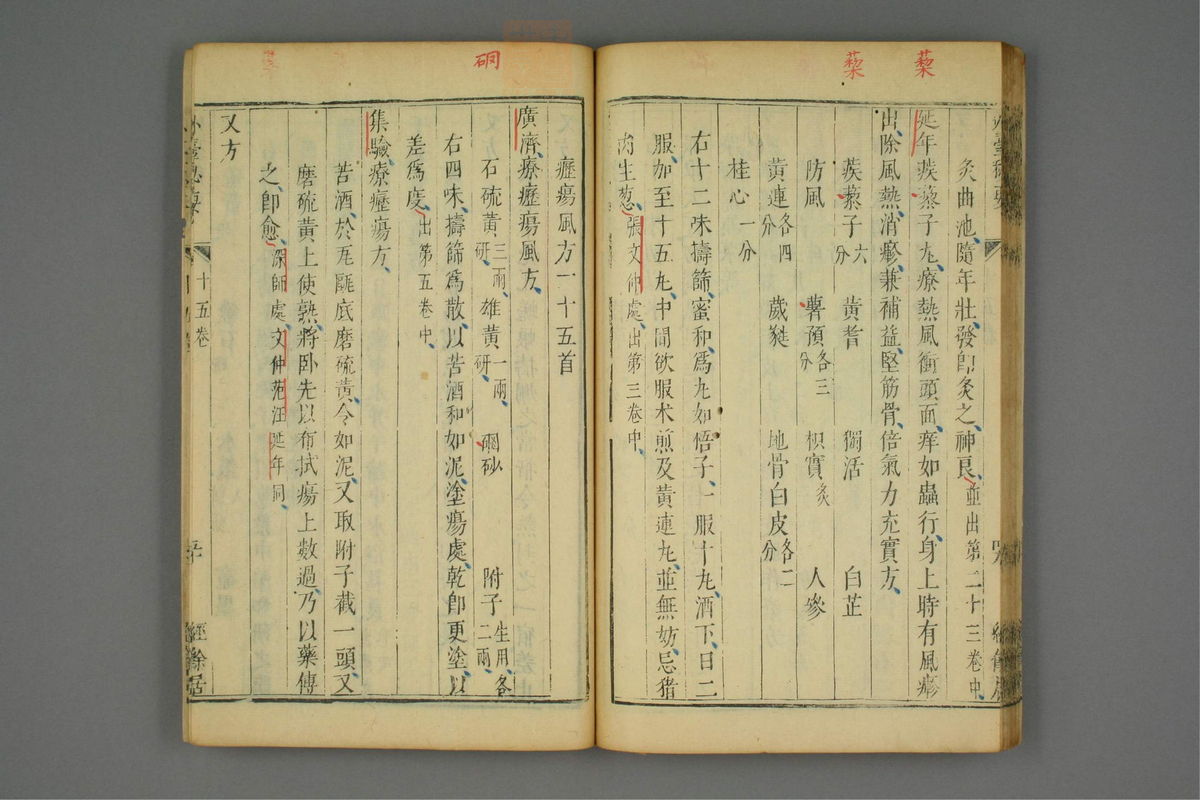 蔾
蔾
灸曲池、隨年壯發即灸之神良、並出第二十三卷中、
延年蒺蔾子丸、療熱風衝頭面、痒如蟲行、身上時有風𤺋
出、除風熱、消𤺋、兼補益、堅筋骨、倍氣力充實方、
蒺蔾子六分 黃耆 獨活 白芷
防風 薯預各三分 枳實炙 人參
黃連各四分 葳蕤 地骨白皮各二分
桂心一分
右十二味擣篩、蜜和爲丸如梧子、一服十丸、酒下、日二
服、加至十五丸、中間欲服朮煎及黃連丸、並無妨、忌猪
肉生葱、張文仲處、出第三卷中、
硇
癧瘍風方一十五首
廣濟、療癧瘍風方、
石硫黃三兩、研 雄黃一兩、研、 硇砂 附子生用、各二兩、
右四味、擣篩爲散、以苦酒和如泥、塗瘍處、乾即更塗、以
差爲度、出第五卷中、
集驗、療癧瘍方、
苦酒、於瓦甌底磨硫黃、令如泥、又取附子截一頭、又
磨硫黃上使熟、將卧先以布拭瘍上數過、乃以藥傅
之、即愈、深師處、文仲范汪延年同、
又方
十五卷
經餘居